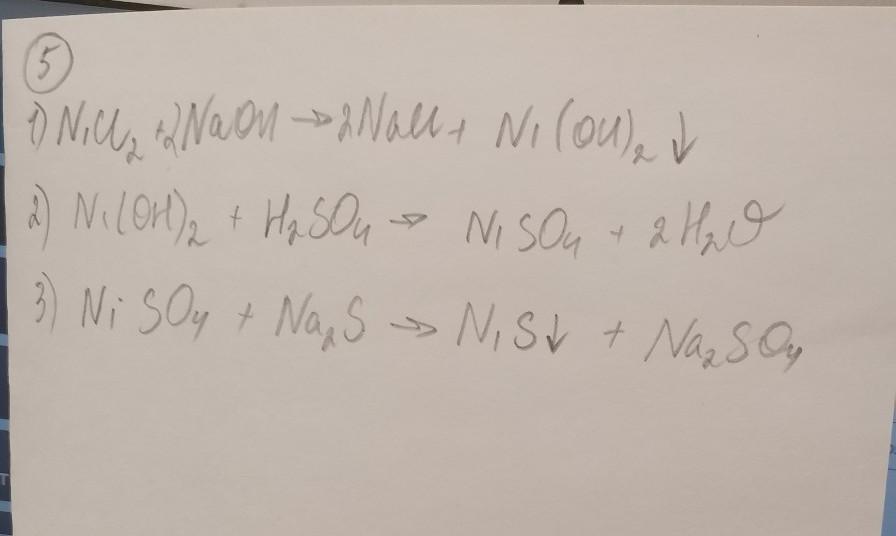 5
1) NiCl₂ + 2NaOH → 2NaCl + Ni(OH)₂ ↓
2) Ni(OH)₂ + H₂SO₄ → NiSO₄ + 2H₂O
3) NiSO₄ + Na₂S → NiS↓ + Na₂SO₄